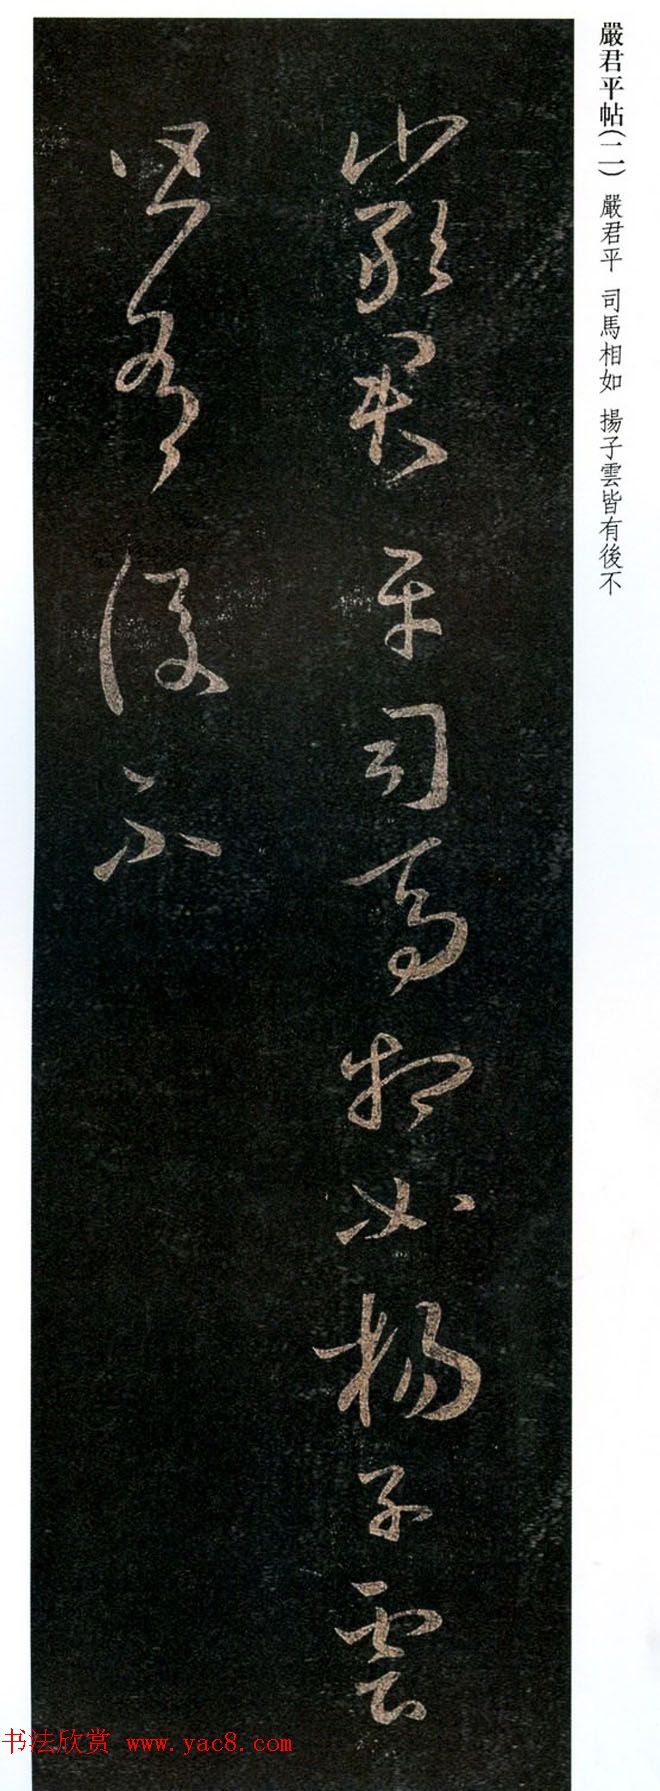 嚴君平帖(二) 嚴君平 司馬相如 揚子雲皆有後不
嚴君平司馬相如楊子雲
皆有後不
书法欣赏 www.yac8.com